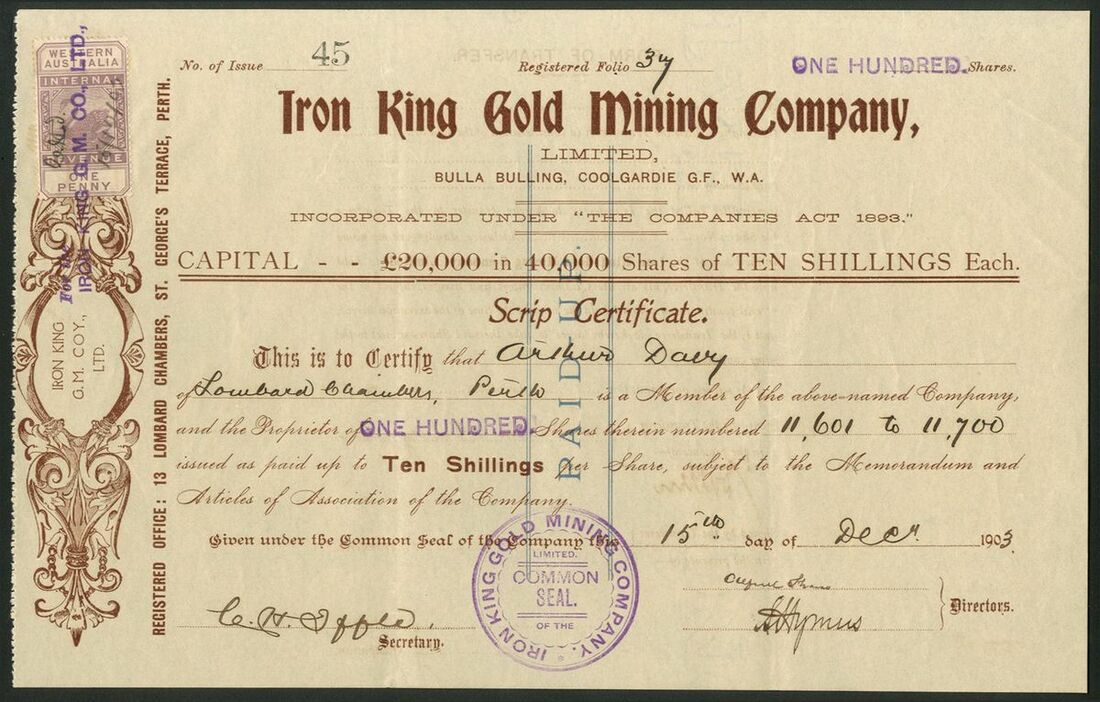 WESTERN
AUSTRALIA
INTERNAL
REVENUE
ONE
PENNY
For the
IRON KING G.M. CO., LTD.,
IRON KING
G.M. COY.,
LTD.
REGISTERED OFFICE: 13 LOMBARD CHAMBERS, ST. GEORGE'S TERRACE, PERTH.
No. of Issue 45 Registered Folio 37 ONE HUNDRED. Shares.
Iron King Gold Mining Company,
LIMITED,
BULLA BULLING, COOLGARDIE G.F., W.A.
INCORPORATED UNDER "THE COMPANIES ACT 1893."
CAPITAL - - £20,000 in 40,000 Shares of TEN SHILLINGS Each.
Scrip Certificate.
PAID-UP.
This is to Certify that Arthur Davy
of Lombard Chambers, Perth is a Member of the above-named Company,
and the Proprietor of ONE HUNDRED. Shares therein numbered 11,601 to 11,700
issued as paid up to Ten Shillings per Share, subject to the Memorandum and
Articles of Association of the Company.
Given under the Common Seal of the Company this 15th day of Decr 1903
IRON KING GOLD MINING COMPANY.
LIMITED.
COMMON
SEAL.
OF THE
Secretary.
Directors.